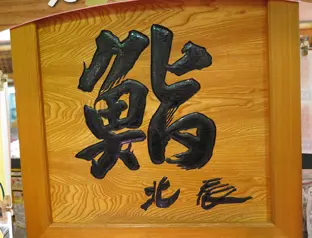 鮨
北辰